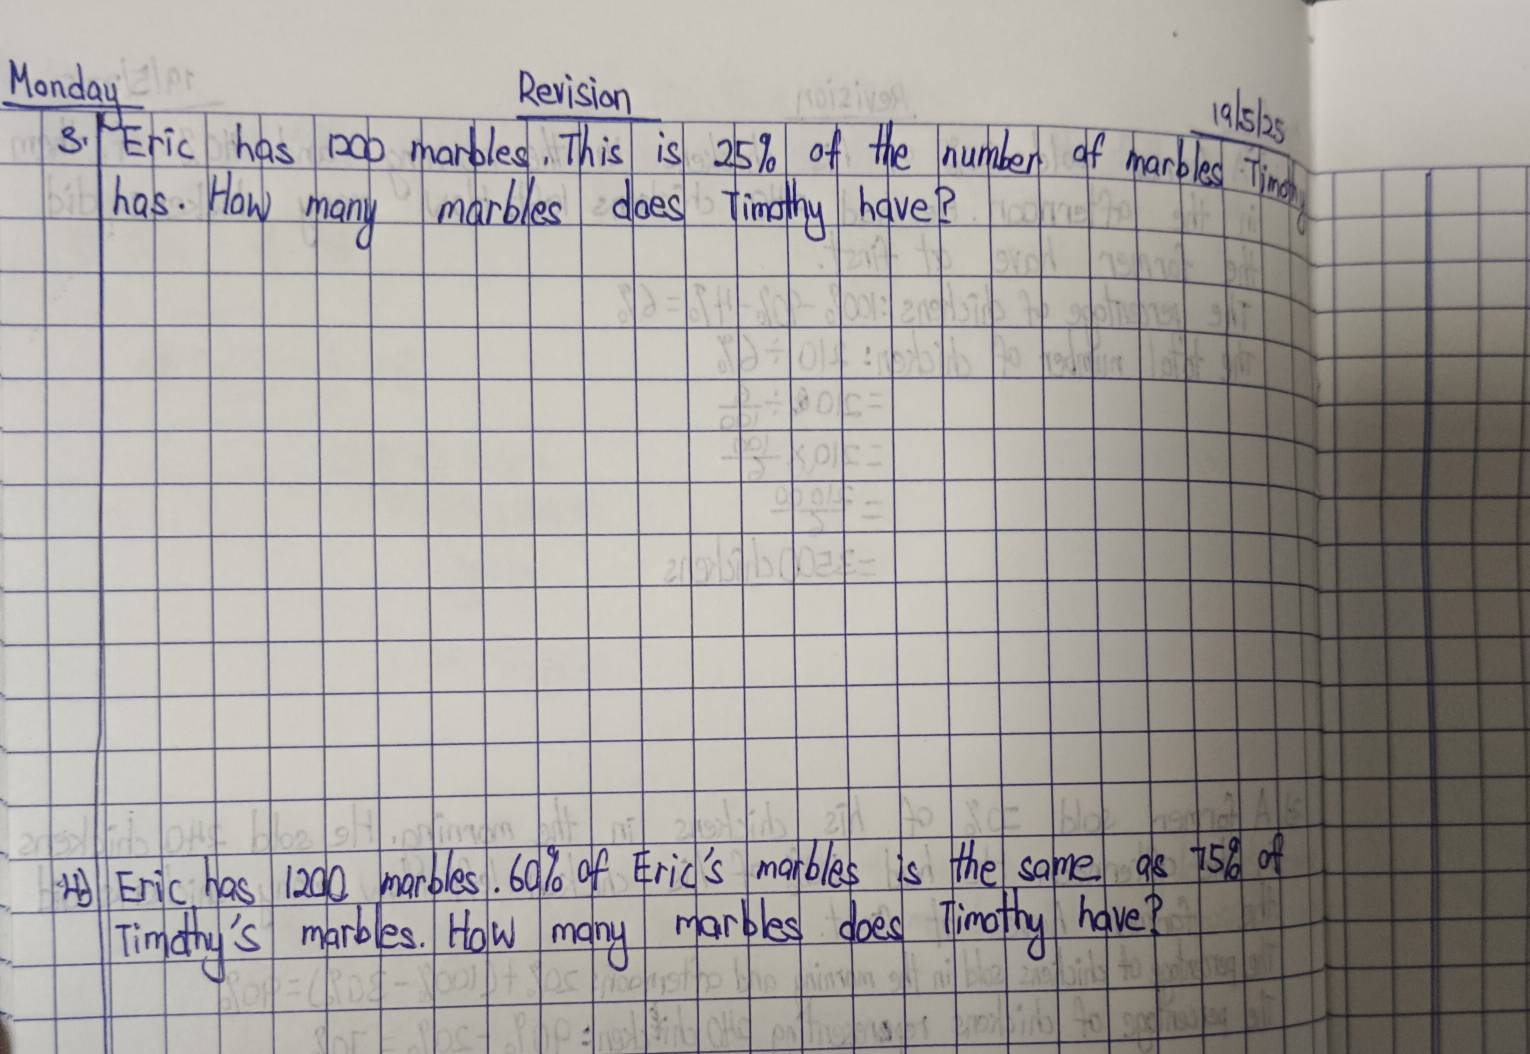 Monday Revision 19/5/25
3. Eric has 1200 marbles. This is 25% of the number of marbles Timothy
has. How many marbles does Timothy have?
4) Eric has 1200 marbles. 60% of Eric's marbles is the same as 75% of
Timothy's marbles. How many marbles does Timothy have?